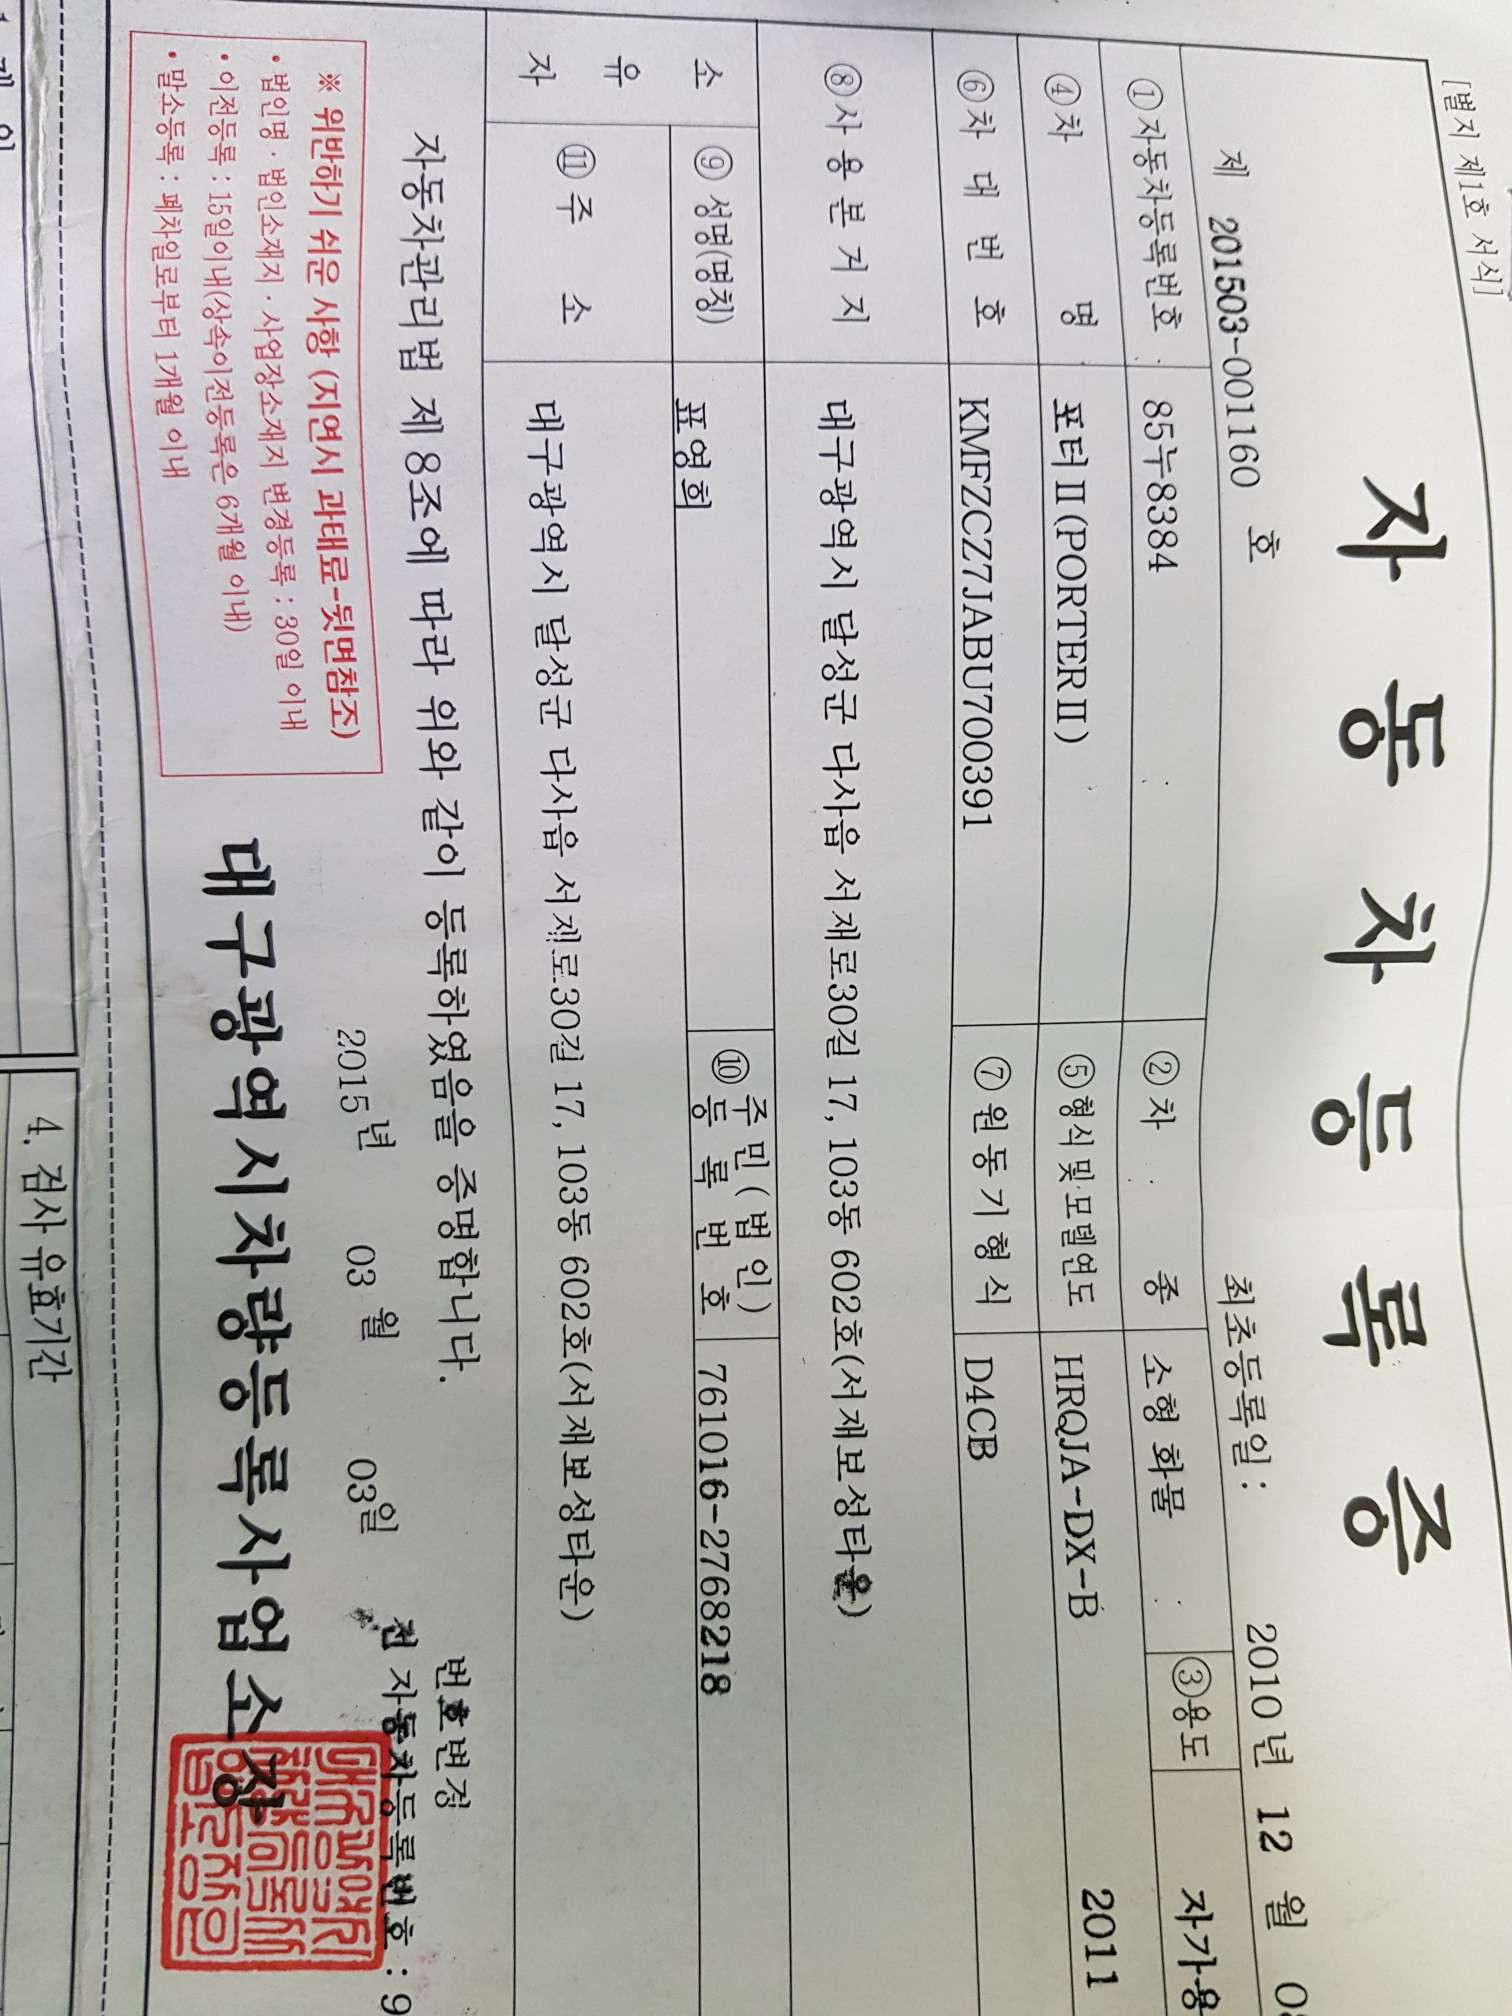 [별지 제1호 서식]
자동차등록증
제 201503-001160 호 최초등록일: 2010년 12 월
①자동차등록번호 85누8384 ②차 종 소형 화물 ③용도 자가용
④차 명 포터Ⅱ(PORTERⅡ) ⑤형식 및 모델연도 HRQJA-DX-B 2011
⑥차 대 번 호 KMFZCZ7JABU700391 ⑦원 동 기 형 식 D4CB
⑧사 용 본 거 지 대구광역시 달성군 다사읍 서재로30길 17, 103동 602호(서재보성타운)
소유자 ⑨성명(명칭) 표영희 ⑩주민(법인)등록번호 761016-2768218
⑪주 소 대구광역시 달성군 다사읍 서재로30길 17, 103동 602호(서재보성타운)
자동차관리법 제8조에 따라 위와 같이 등록하였음을 증명합니다.
번호변경
2015년 03 월 03일 전 자동차등록번호 : 9
※ 위반하기 쉬운 사항 (지연시 과태료-뒷면참조)
• 법인명 · 법인소재지 · 사업장소재지 변경등록 : 30일 이내
• 이전등록 : 15일이내(상속이전등록은 6개월 이내)
• 말소등록 : 폐차일로부터 1개월 이내
대구광역시차량등록사업소장
4. 검사 유효기간